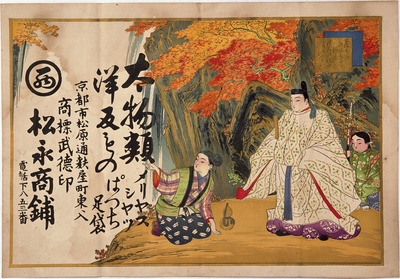 太物類
メリヤス
シャツ
洋反もの
ぱっち
足袋
京都市松原通麩屋町東入
商標武徳印
松永商鋪
電話下八五三番